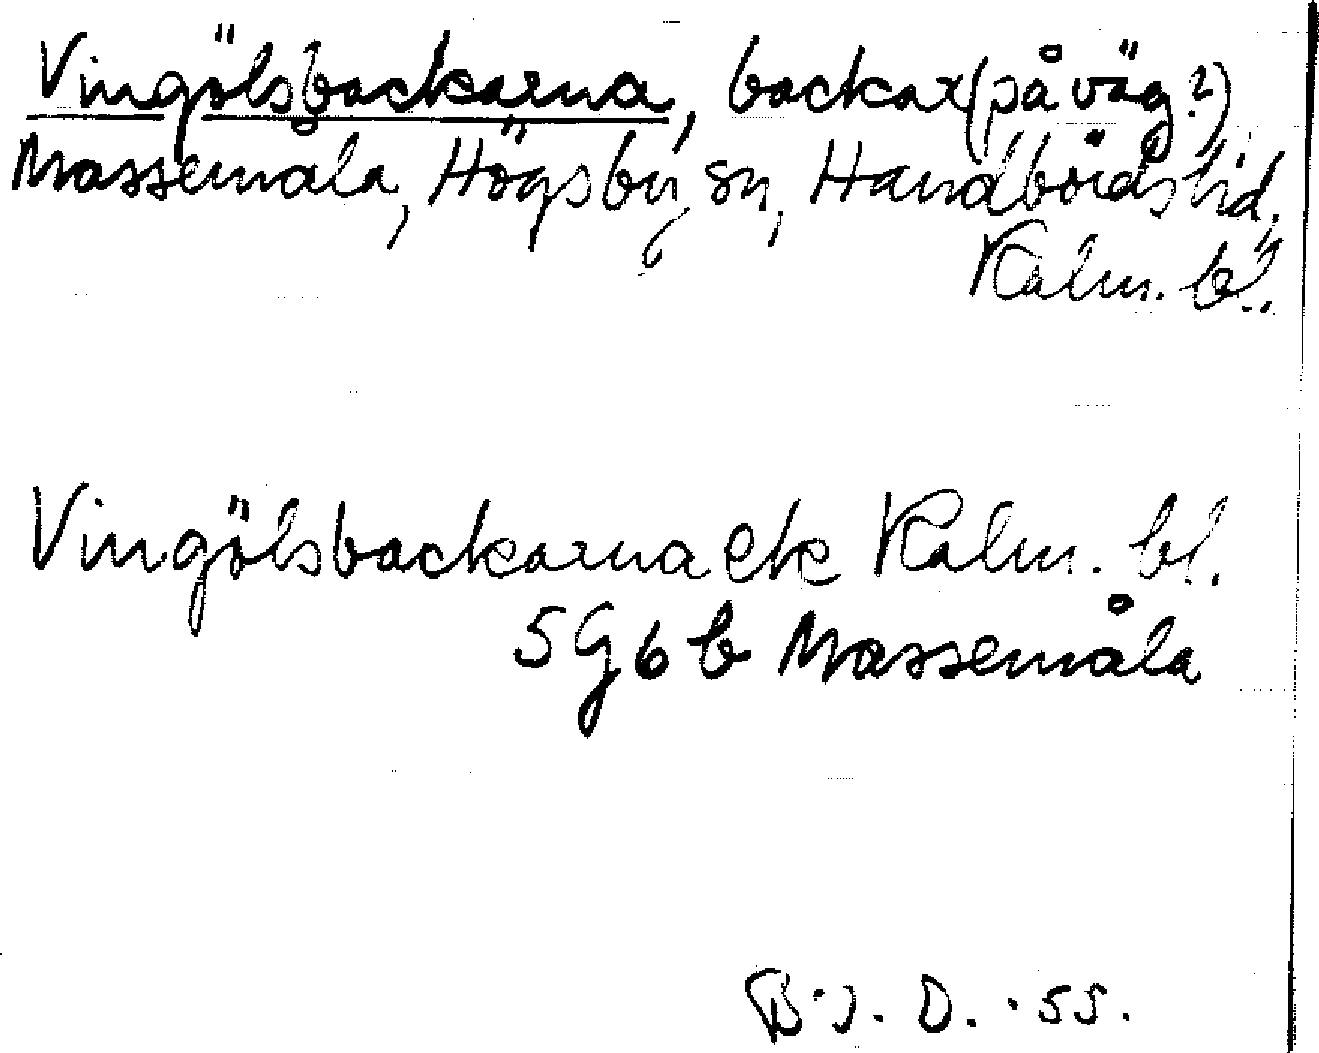 Vingölsbackarna, backar (på väg?)
Massemåla, Högsby sn, Handbörds hd,
Kalm. l..
Vingölsbackarna ek Kalm. bl.
5 G 6 b Massemåla
B. J. D. . 55.